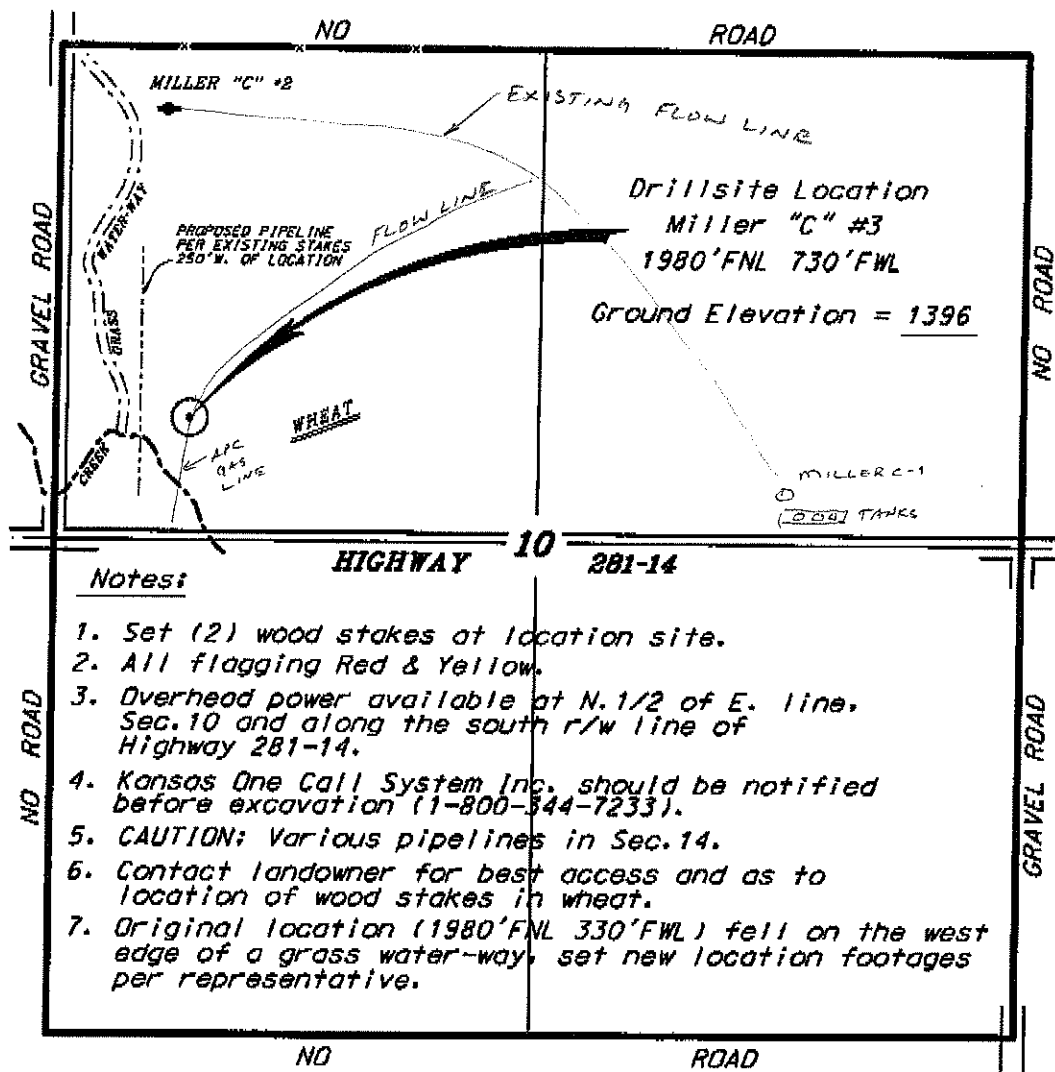 NO ROAD
MILLER "C" #2
EXISTING FLOW LINE
GRAVEL ROAD
WATER-WAY
GRASS
PROPOSED PIPELINE
PER EXISTING STAKES
250'W. OF LOCATION
FLOW LINE
Drillsite Location
Miller "C" #3
1980'FNL 730'FWL
Ground Elevation = 1396
NO ROAD
WHEAT
CREEK
APC
GAS
LINE
MILLER C-1
TANKS
10
HIGHWAY 281-14
Notes:
1. Set (2) wood stakes at location site.
2. All flagging Red & Yellow.
3. Overhead power available at N.1/2 of E. line,
Sec.10 and along the south r/w line of
Highway 281-14.
4. Kansas One Call System Inc. should be notified
before excavation (1-800-344-7233).
5. CAUTION: Various pipelines in Sec.14.
6. Contact landowner for best access and as to
location of wood stakes in wheat.
7. Original location (1980'FNL 330'FWL) fell on the west
edge of a grass water-way, set new location footages
per representative.
NO ROAD
GRAVEL ROAD
NO ROAD